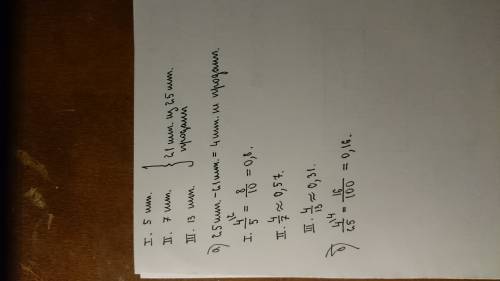 I. 5 шт.
II. 7 шт. } 21 шт. из 25 шт.
III. 13 шт. продали
а) 25 шт. - 21 шт. = 4 шт. не продали.
I. 4/5 = 8/10 = 0,8.
II. 4/7 ≈ 0,57.
III. 4/13 ≈ 0,31.
б) 4/25 = 16/100 = 0,16.